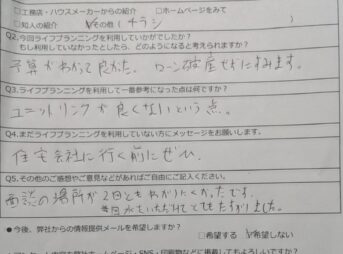 □工務店・ハウスメーカーからの紹介 □ホームページをみて
□知人の紹介 ☑その他(チラシ )
Q2.今回ライフプランニングを利用していかがでしたか?
もし利用していなかったとしたら、どのようになると考えられますか?
予算がわかって良かった。ローン破産せずにすみます。
Q3.ライフプランニングを利用して一番参考になった点は何ですか?
ユニットリンクが良くないという点。
Q4.まだライフプランニングを利用していない方にメッセージをお願いします。
住宅会社に行く前にぜひ
Q5.その他のご感想やご意見などがあればご自由にご記入ください。
面談の場所が2回ともわかりにくかったです。
日水をいただけてとても助かりました。
● 今後、弊社からの情報提供メールを希望しますか? □希望する ☑希望しない